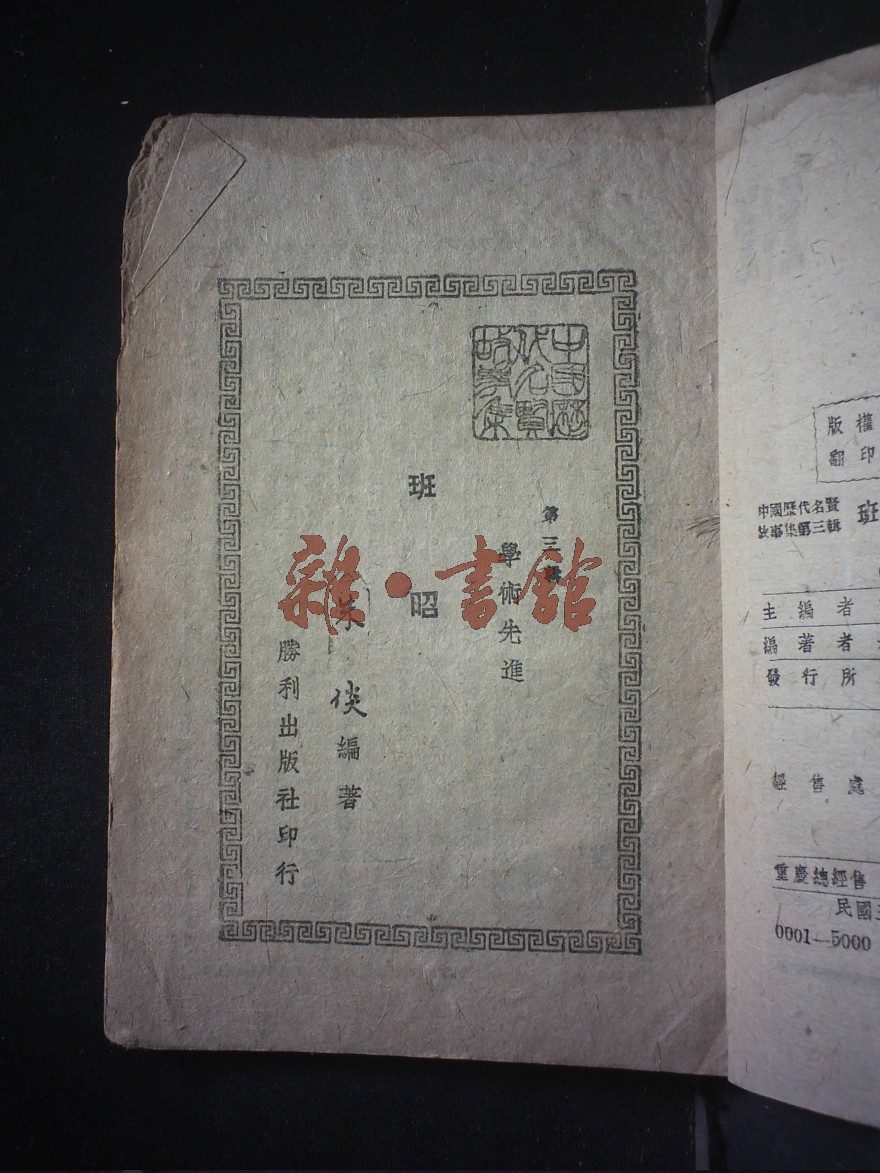 中國歷代名賢故事集
第三輯
學術先進
班昭
朱倓編著
勝利出版社印行
雜·書館
版權
翻印
中國歷代名賢
故事集第三輯
班
主編者
編著者
發行所
經售處
重慶總經售
民國三
0001—5000